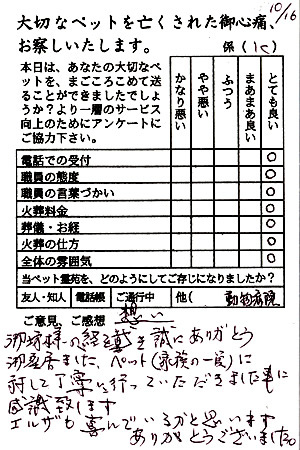 10/16
大切なペットを亡くされた御心痛、
お察しいたします。
係(
本日は、あなたの大切なペ
ットを、まごころこめて送
ることができましたでしょ
うか？より一層のサービス
向上のためにアンケートに
ご協力下さい。
かなり悪い
やや悪い
ふつう
まあまあ良い
とても良い
電話での受付 ○
職員の態度 ○
職員の言葉づかい ○
火葬料金 ○
葬儀・お経 ○
火葬の仕方 ○
全体の雰囲気 ○
当ペット霊苑を、どのようにしてご存じになりましたか？
友人・知人 電話帳 ご通行中 他( 動物病院
ご意見 ご感想 想い
誠にありがとう
ペット(家族の一員)に
対して丁寧に行っていただきました事に
感謝致します
エルザも喜んでいるかと思います
ありがとうございました。